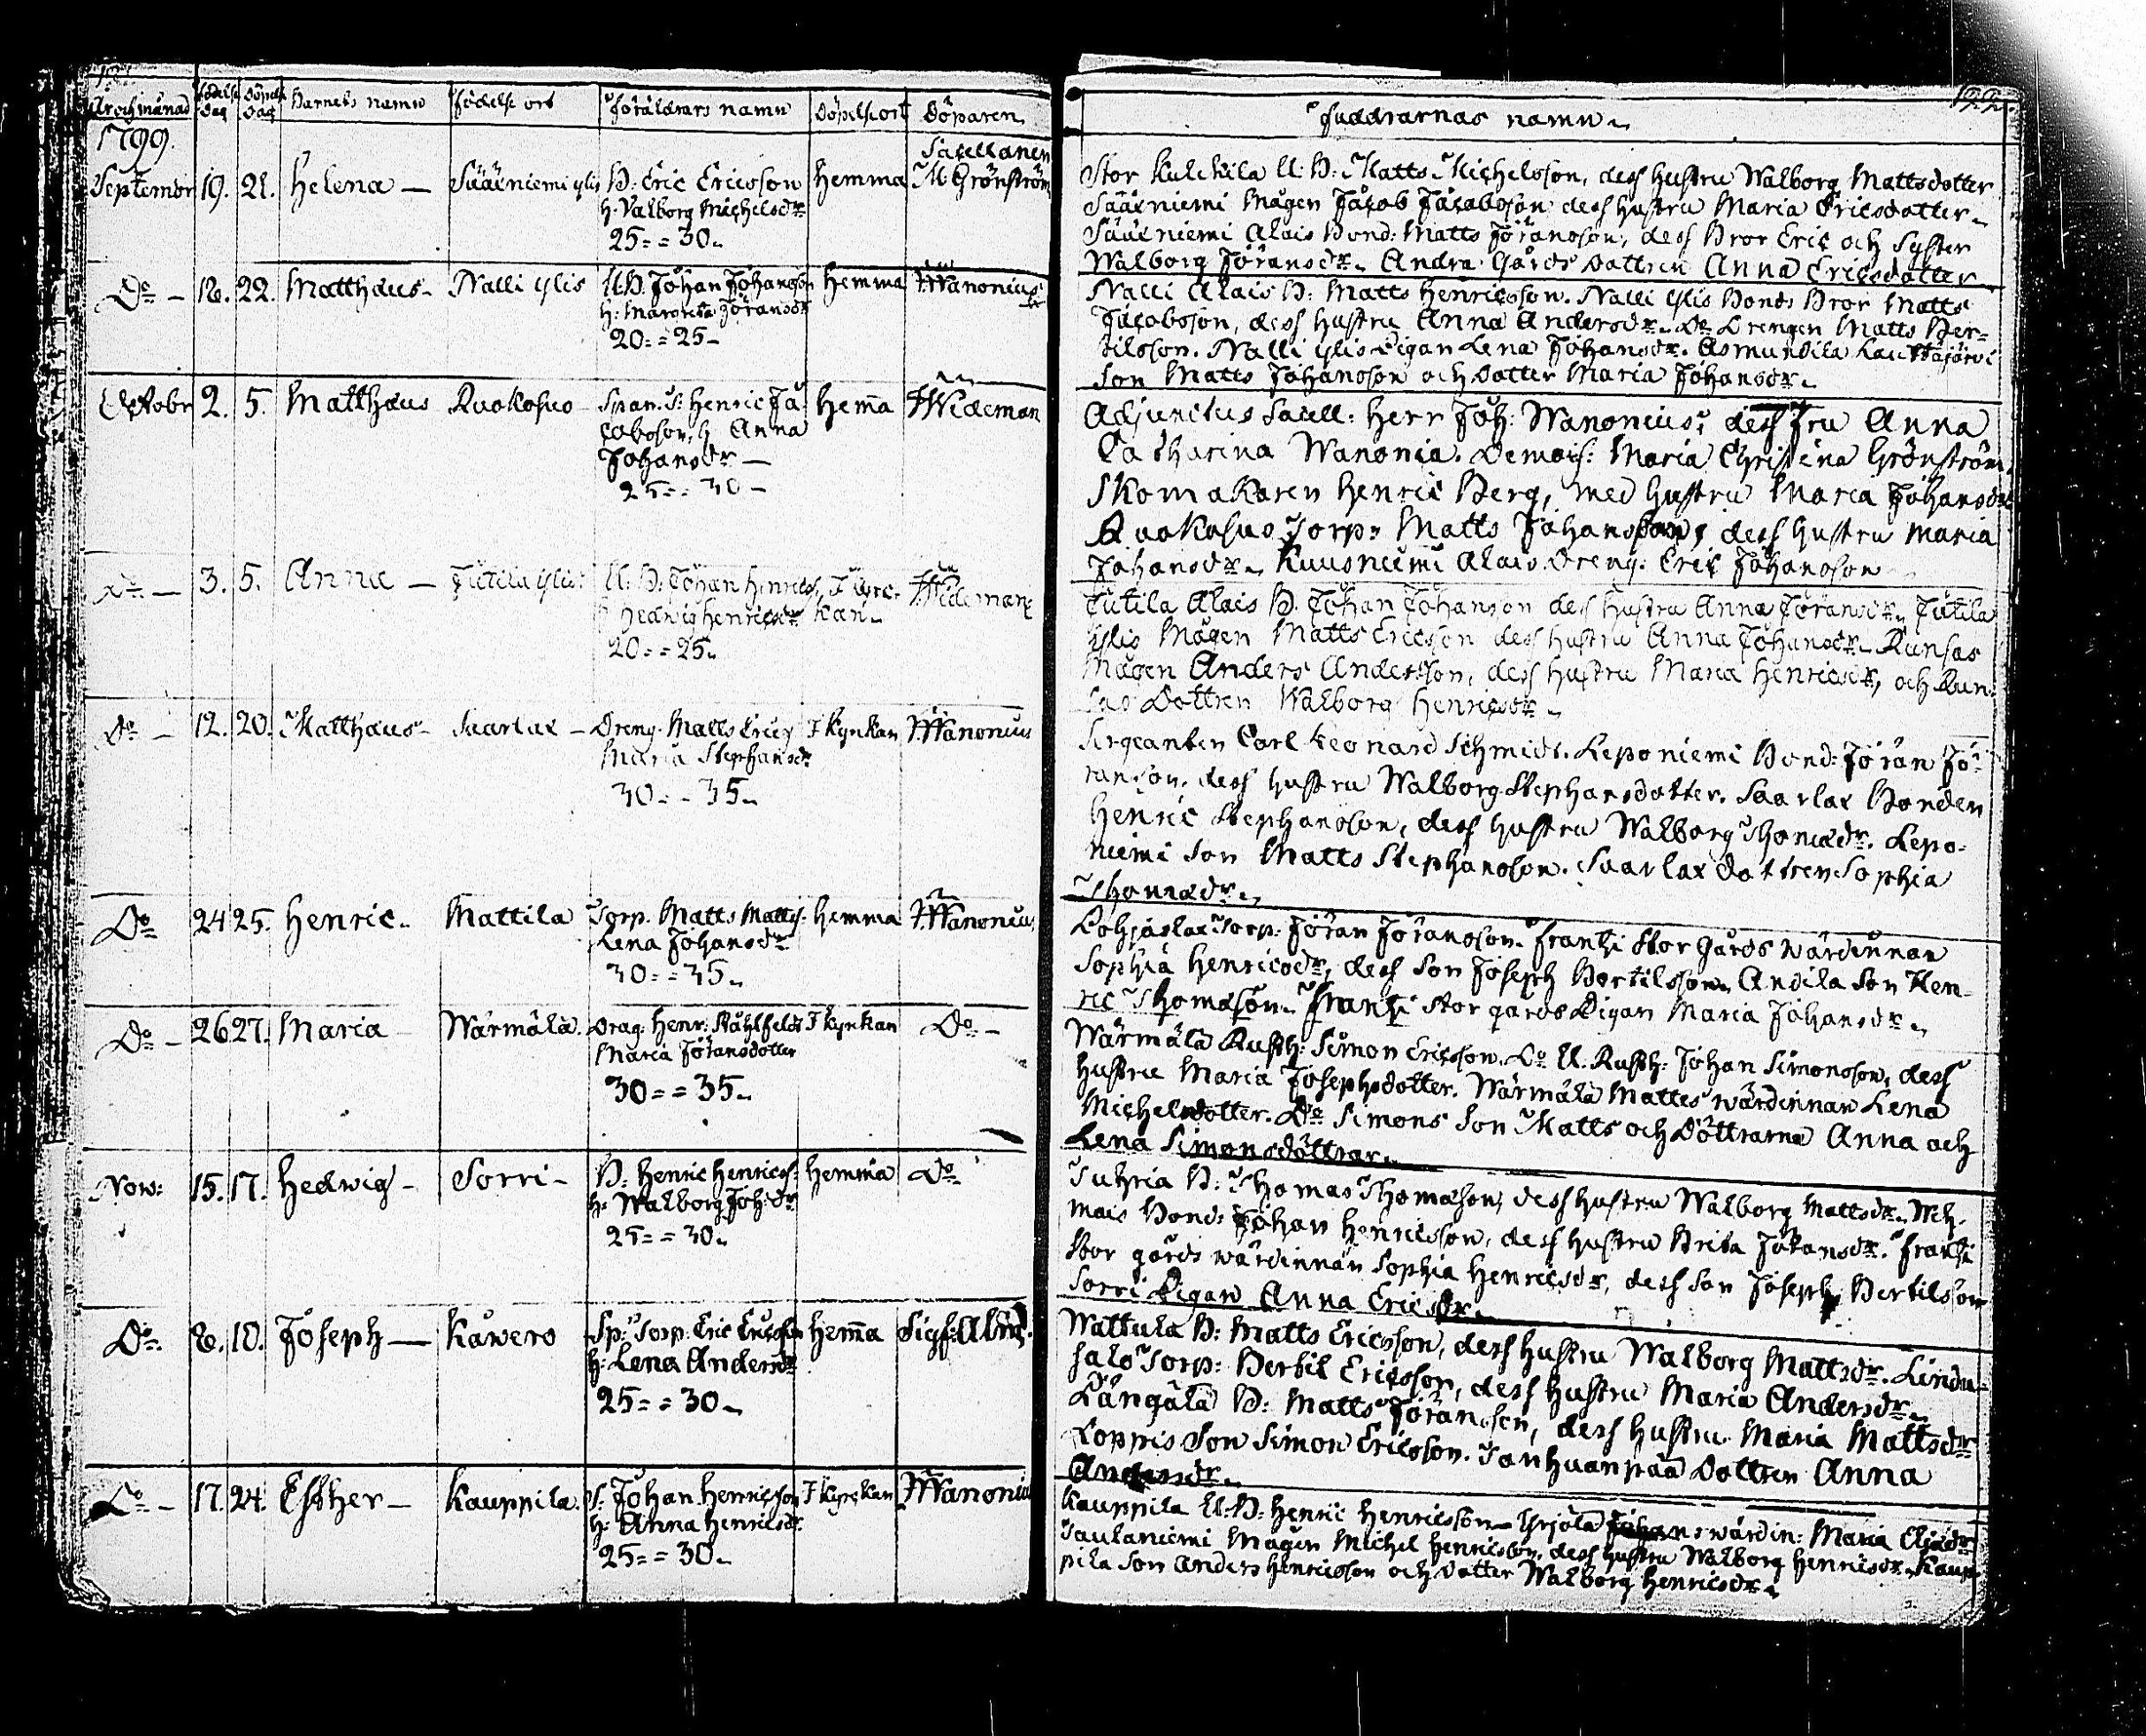 År och månad födelse dag Döpelse dag Barnets namn födelse ort föräldrars namn Döpelse ort Döparen
1799.
Septembr 19. 21. Helena — Sääxniemi ylis B: Eric Ericsson Hemma Sacellanen M: Grönström
H: Valborg Michelsdr
25 = = 30.
Do — 18. 22. Matthæus — Nalli ylis U.B. Johan Johansson Hemma J. Wanonius
H: Margreta Jöransdr
20 = = 25 —
October 2. 5. Matthæus Ruokosuo — Henric Ja- Hemma J Wideman
cobsson, H. Anna
Johansdr —
25 = = 30 —
Do — 3. 5. Anna — Jutila ylis U: B: Johan Henricss. I kyrc- J. Wideman
H Hedwig Henricsdr kan.
20 = = 25.
Do — 12. 20. Matthæus — Saarlax — Dreng. Matts Erics I kyrkan J. Wanonius
Maria Stephansdr
30 = - 35.
Do 24 25. Henric. Mattila Torp. Matts Matts. Hemma J. Wanonius
Lena Johansdr
30 = = 35.
Do — 26 27. Maria — Wärmälä. Drag: Henr: Ståhlfelt I kyrkan Do —
Maria Jöransdotter
30 = = 35.
Now: 15. 17. Hedwig — Sorri — B: Henric Henricss: Hemma Do
H: Walborg Joh:dr
25 = = 30.
Do. 8. 10. Joseph — Kawero Sp: Torp. Eric Ericsson Hemma Sigf: Alm.
H: Lena Andersdr
25 = = 30.
Do — 17. 24. Esther — Kauppila. S. Johan Henricsson I kyrkan J Wanonius
H: Anna Henricsdr
25 = = 30.
122.
Faddrarnas namn.
Stor U: B: Matts Michelsson, dess hustru Walborg Mattsdotter
Sääxniemi Mågen Jacob Jacobsson dess hustru Maria Ericsdotter.
Sääxniemi Alais Bond: Matts Jöransson, dess Bror Eric och Syster
Walborg Jöransdr. Andra Gårds Dottren Anna Ericsdotter
Nalli Alais B: Matts Henricsson. Nalli ylis Bonds Bror Matts
Jacobsson, dess hustru Anna Andersdr. Do Drengen Matts Ber-
tilsson. Nalli ylis Pigan Lena Johansdr. Asmundila Lauttajärvi
Son Matts Johansson och Dotter Maria Johansdr.
Adjunctus Sacell: Herr Joh: Wanonius, dess Fru Anna
Catharina Wanonia. Demois: Maria Christina Grönström.
Skomakaren Henric Berg, med hustru Maria Johansdr
Ruokosuo Torp: Matts Johansson, dess hustru Maria
Johansdr. Kuusniemi Alais Dreng: Eric Johansson
Jutila Alais B. Johan Johansson dess hustru Anna Jöransdr. Jutila
ylis Mågen Matts Ericsson dess hustru Anna Johansdr. Runsas
Mågen Anders Andersson, dess hustru Maria Henricsdr, och Run-
sas Dottren Walborg Henricsdr.
Sergeanten Carl Leonard Schmidt. Leponiemi Bond: Jöran Jö-
ransson. dess hustru Walborg Stephansdotter. Saarlax Bonden
Henric Stephansson, dess hustru Walborg Thomædr. Lepo-
niemi Son Matts Stephansson. Saarlax Dottren Sophia
Thomædr.
Lohjaslax Torp: Jöran Jöransson. Frantzi Stor gårds wärdinnan
Sophia Henricsdr, dess Son Joseph Bertilsson. Andila Son Hen-
ric Thomasson. Frantzi stor gårds Pigan Maria Johansdr.
Wärmälä Rusth: Simon Ericsson. Do U. Rusth: Johan Simonsson, dess
hustru Maria Josephsdotter. Wärmälä Mattes wärdinnan Lena
Michelsdotter. Do Simons Son Matts och Döttrarna Anna och
Lena Simonsdöttrar.
Tuhria B: Thomas Thomasson, dess hustru Walborg Mattsdr.
mais Bond: Johan Henricsson, dess hustru Brita Johansdr. Frantzi
Stor gårds wärdinnan Sophia Henricsdr, dess Son Joseph Bertilsson
Sorri Pigan Anna Ericsdr.
Wattula B: Matts Ericsson, dess hustru Walborg Mattsdr. Lindu-
salo Torp: Bertil Ericsson, dess hustru Maria Andersdr.
Längälä B: Matts Jöransson, dess hustru Maria Mattsdr
Loppis Son Simon Ericsson. Tanhuanpää Dottren Anna
Andersdr.
Kauppila U.B: Henric Henricsson — Yrjölä wärdin: Maria Eliædr
Taulaniemi Mågen Michel Henricsson, dess hustru Walborg Henricsdr. Kaup-
pila Son Anders Henricsson och Dotter Walborg Henricsdr.